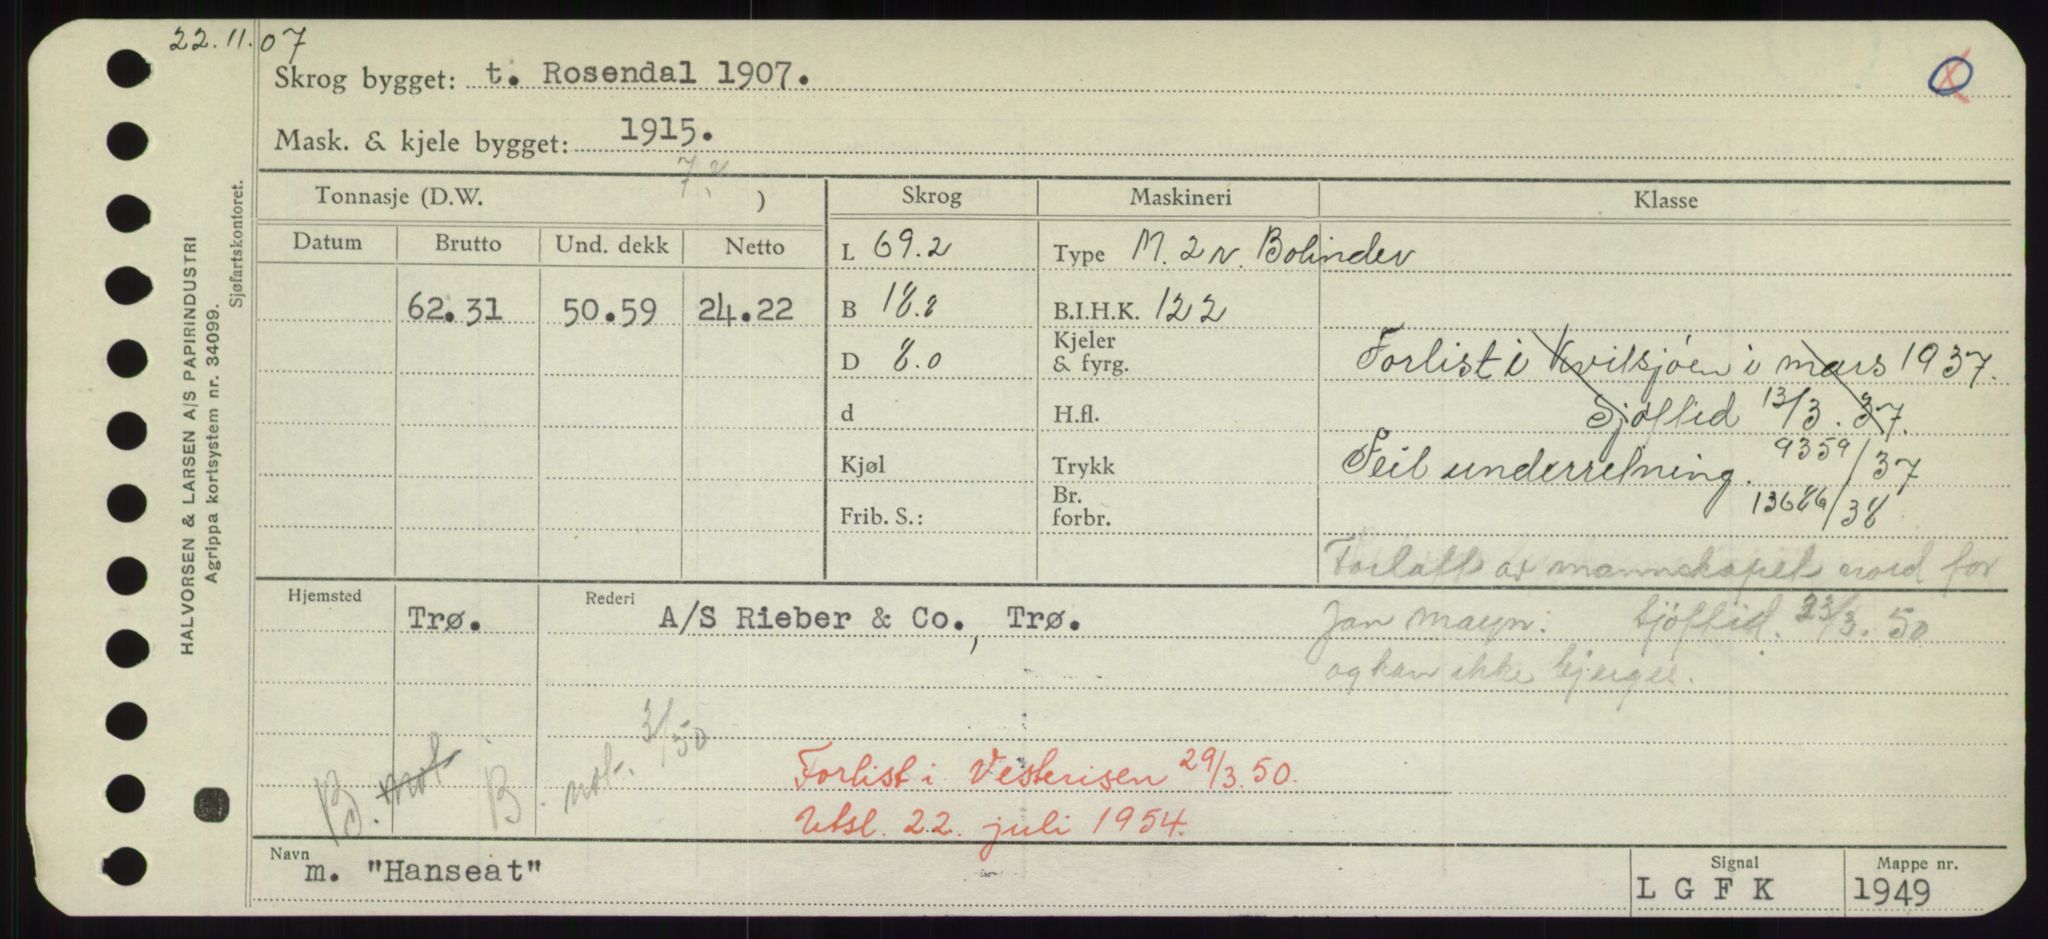 22.11.07
Skrog bygget: t. Rosendal 1907.
Mask. & kjele bygget: 1915.
Tonnasje (D.W. )
Skrog
Maskineri
Klasse
Datum Brutto Und. dekk Netto
L 69.2
Type M. 2 v. Bolinder
62.31 50.59 24.22
B 18.8
B.I.H.K. 122
D 8.0
Kjeler
& fyrg.
Forlist i Kvitsjøen i mars 1937.
d
H.fl.
Sjøftid 13/3. 37.
Kjøl
Trykk
Feil underretning. 9359/37
Frib. S.:
Br.
forbr.
13686/38
Forlatt av mannskapet nord for
Jan Mayn. Sjøftid. 23/3. 50
og kan ikke bjerges.
Hjemsted
Trø.
Rederi
A/S Rieber & Co., Trø.
B. not
B. not. 3/50
Forlist i Vesterisen 29/3.50.
Utsl. 22. juli 1954.
Navn
m. "Hanseat"
Signal
L G F K
Mappe nr.
1949
HALVORSEN & LARSEN A/S PAPIRINDUSTRI
Agrippa kortsystem nr. 34099.
Sjøfartskontoret.